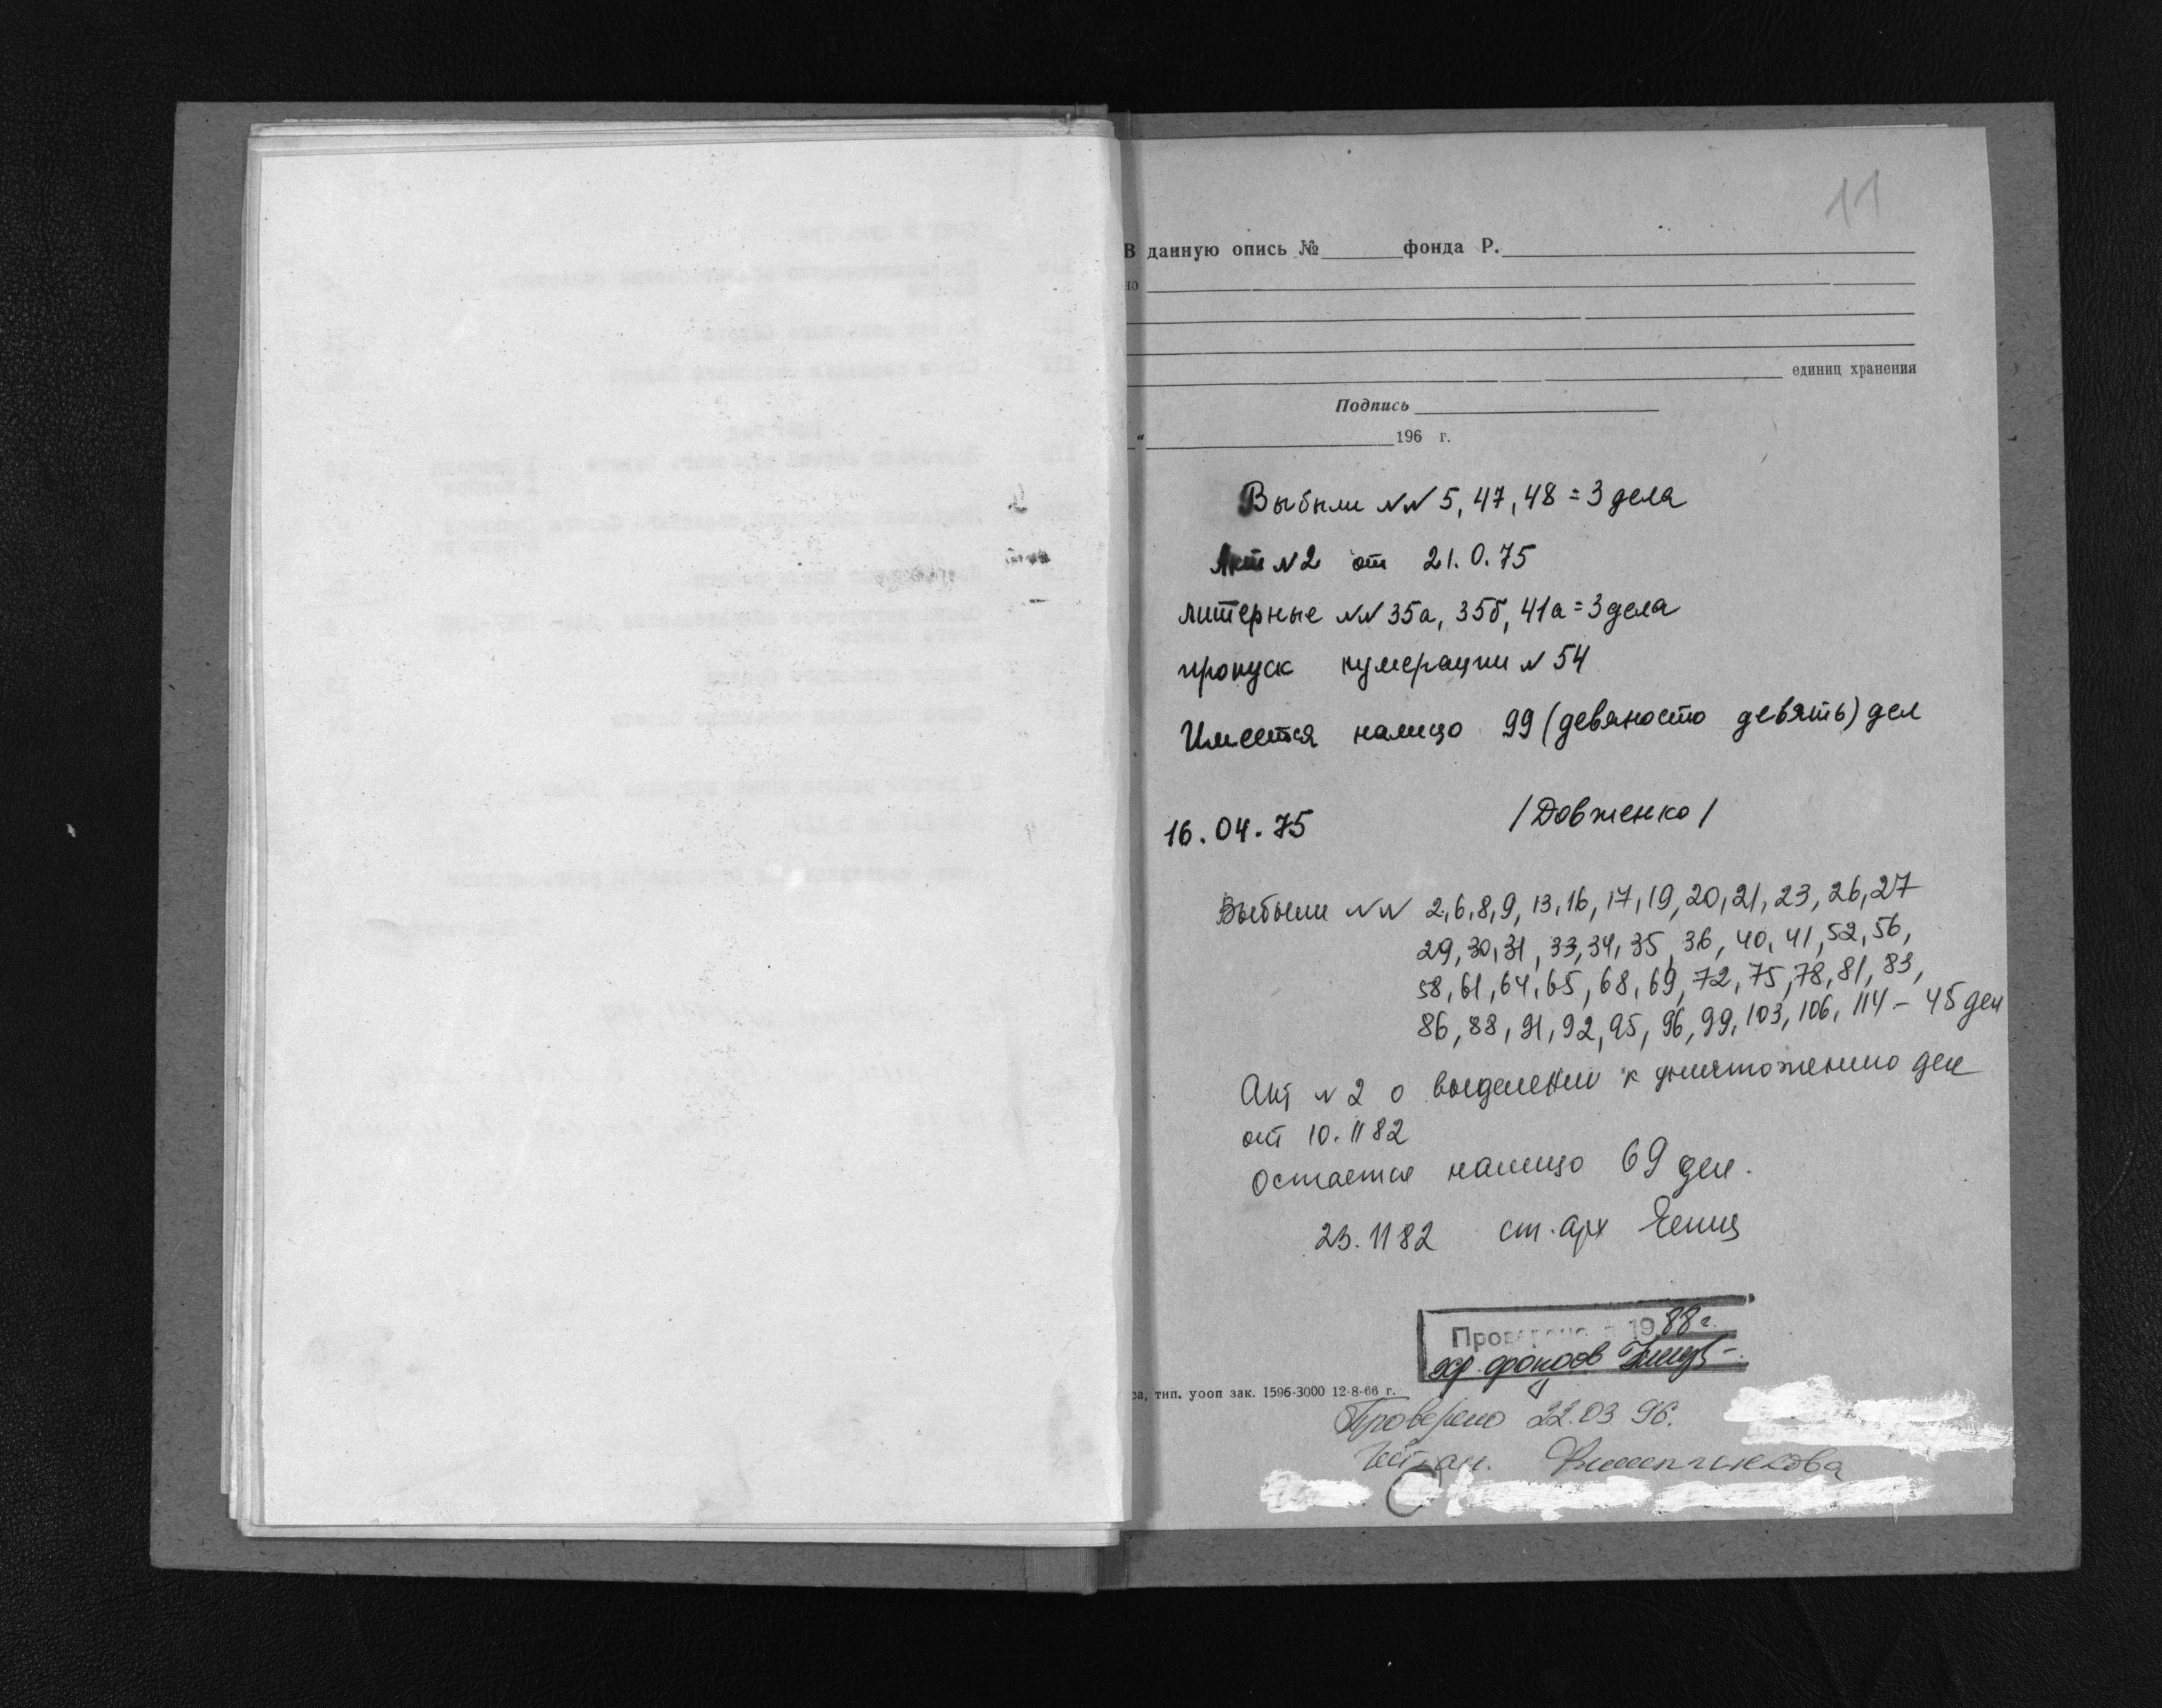 11
В данную опись № фонда Р.
но
единиц хранения
Подпись
" 196 г.
Выбыли NN 5, 47, 48 = 3 дела
Акт N2 от 21.0.75
литерные NN 35а, 35б, 41а = 3 дела
пропуск нумерации N 54
Имеется налицо 99 (девяносто девять) дел
16.04.75 /Довженко/
Выбыли NN 2,6,8,9, 13,16, 17,19,20,21,23,26,27
29,30,31, 33,34,35, 36, 40, 41, 52, 56,
58, 61, 64, 65, 68, 69, 72, 75, 78, 81, 83,
86, 88, 91, 92, 95, 96, 99, 103, 106, 114 – 45 дел
Акт N 2 о выделении к уничтожению дел
от 10.11 82
Остается налицо 69 дел.
23.11 82 ст. арх
Проверено в 19 88 г.
хр. фондов
са, тип. уооп зак. 1596-3000 12-8-66 г.
Проверено 22.03 96.